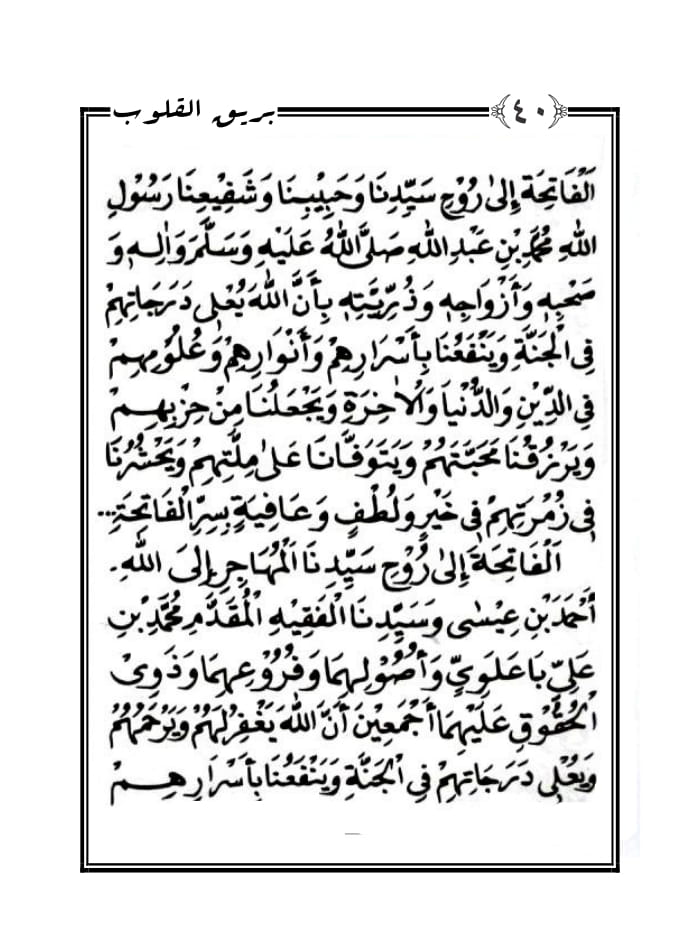 بريق القلوب ﴿٤٠﴾
اَلْفَاتِحَة إِلىٰ رُوْحِ سَيِّدِنَا وَحَبِيْبِنَا وَشَفِيْعِنَا رَسُوْلِ
اللهِ مُحَمَّدِ بْنِ عَبْدِ اللهِ صَلَّى اللهُ عَلَيْهِ وَسَلَّمَ وَاٰلِهِ وَ
صَحْبِهِ وَأَزْوَاجِهِ وَذُرِّيَّتِهِ بِأَنَّ اللهَ يُعْلِي دَرَجَاتِهِمْ
فِي الْجَنَّةِ وَيَنْفَعُنَا بِأَسْرَارِهِمْ وَأَنْوَارِهِمْ وَعُلُوْمِهِمْ
فِي الدِّيْنِ وَالدُّنْيَا وَالْاٰخِرَةِ وَيَجْعَلُنَا مِنْ حِزْبِهِمْ
وَيَرْزُقُنَا مَحَبَّتَهُمْ وَيَتَوَفَّانَا عَلىٰ مِلَّتِهِمْ وَيَحْشُرُنَا
فِي زُمْرَتِهِمْ فِي خَيْرٍ وَلُطْفٍ وَعَافِيَةٍ بِسِرِّ الْفَاتِحَةِ...
اَلْفَاتِحَةَ إِلىٰ رُوْحِ سَيِّدِنَا الْمُهَاجِرِ إِلَى اللهِ.
أَحْمَدَ بْنِ عِيْسٰى وَسَيِّدِنَا الْفَقِيْهِ الْمُقَدَّمِ مُحَمَّدِ بْنِ
عَلِيّ بَاعَلَوِيّ وَأُصُوْلِهِمَا وَفُرُوْعِهِمَا وَذَوِىْ
الْحُقُوْقِ عَلَيْهِمَا أَجْمَعِيْنَ أَنَّ اللهَ يَغْفِرُ لَهُمْ وَيَرْحَمُهُمْ
وَيُعْلِي دَرَجَاتِهِمْ فِي الْجَنَّةِ وَيَنْفَعُنَا بِأَسْرَارِهِمْ